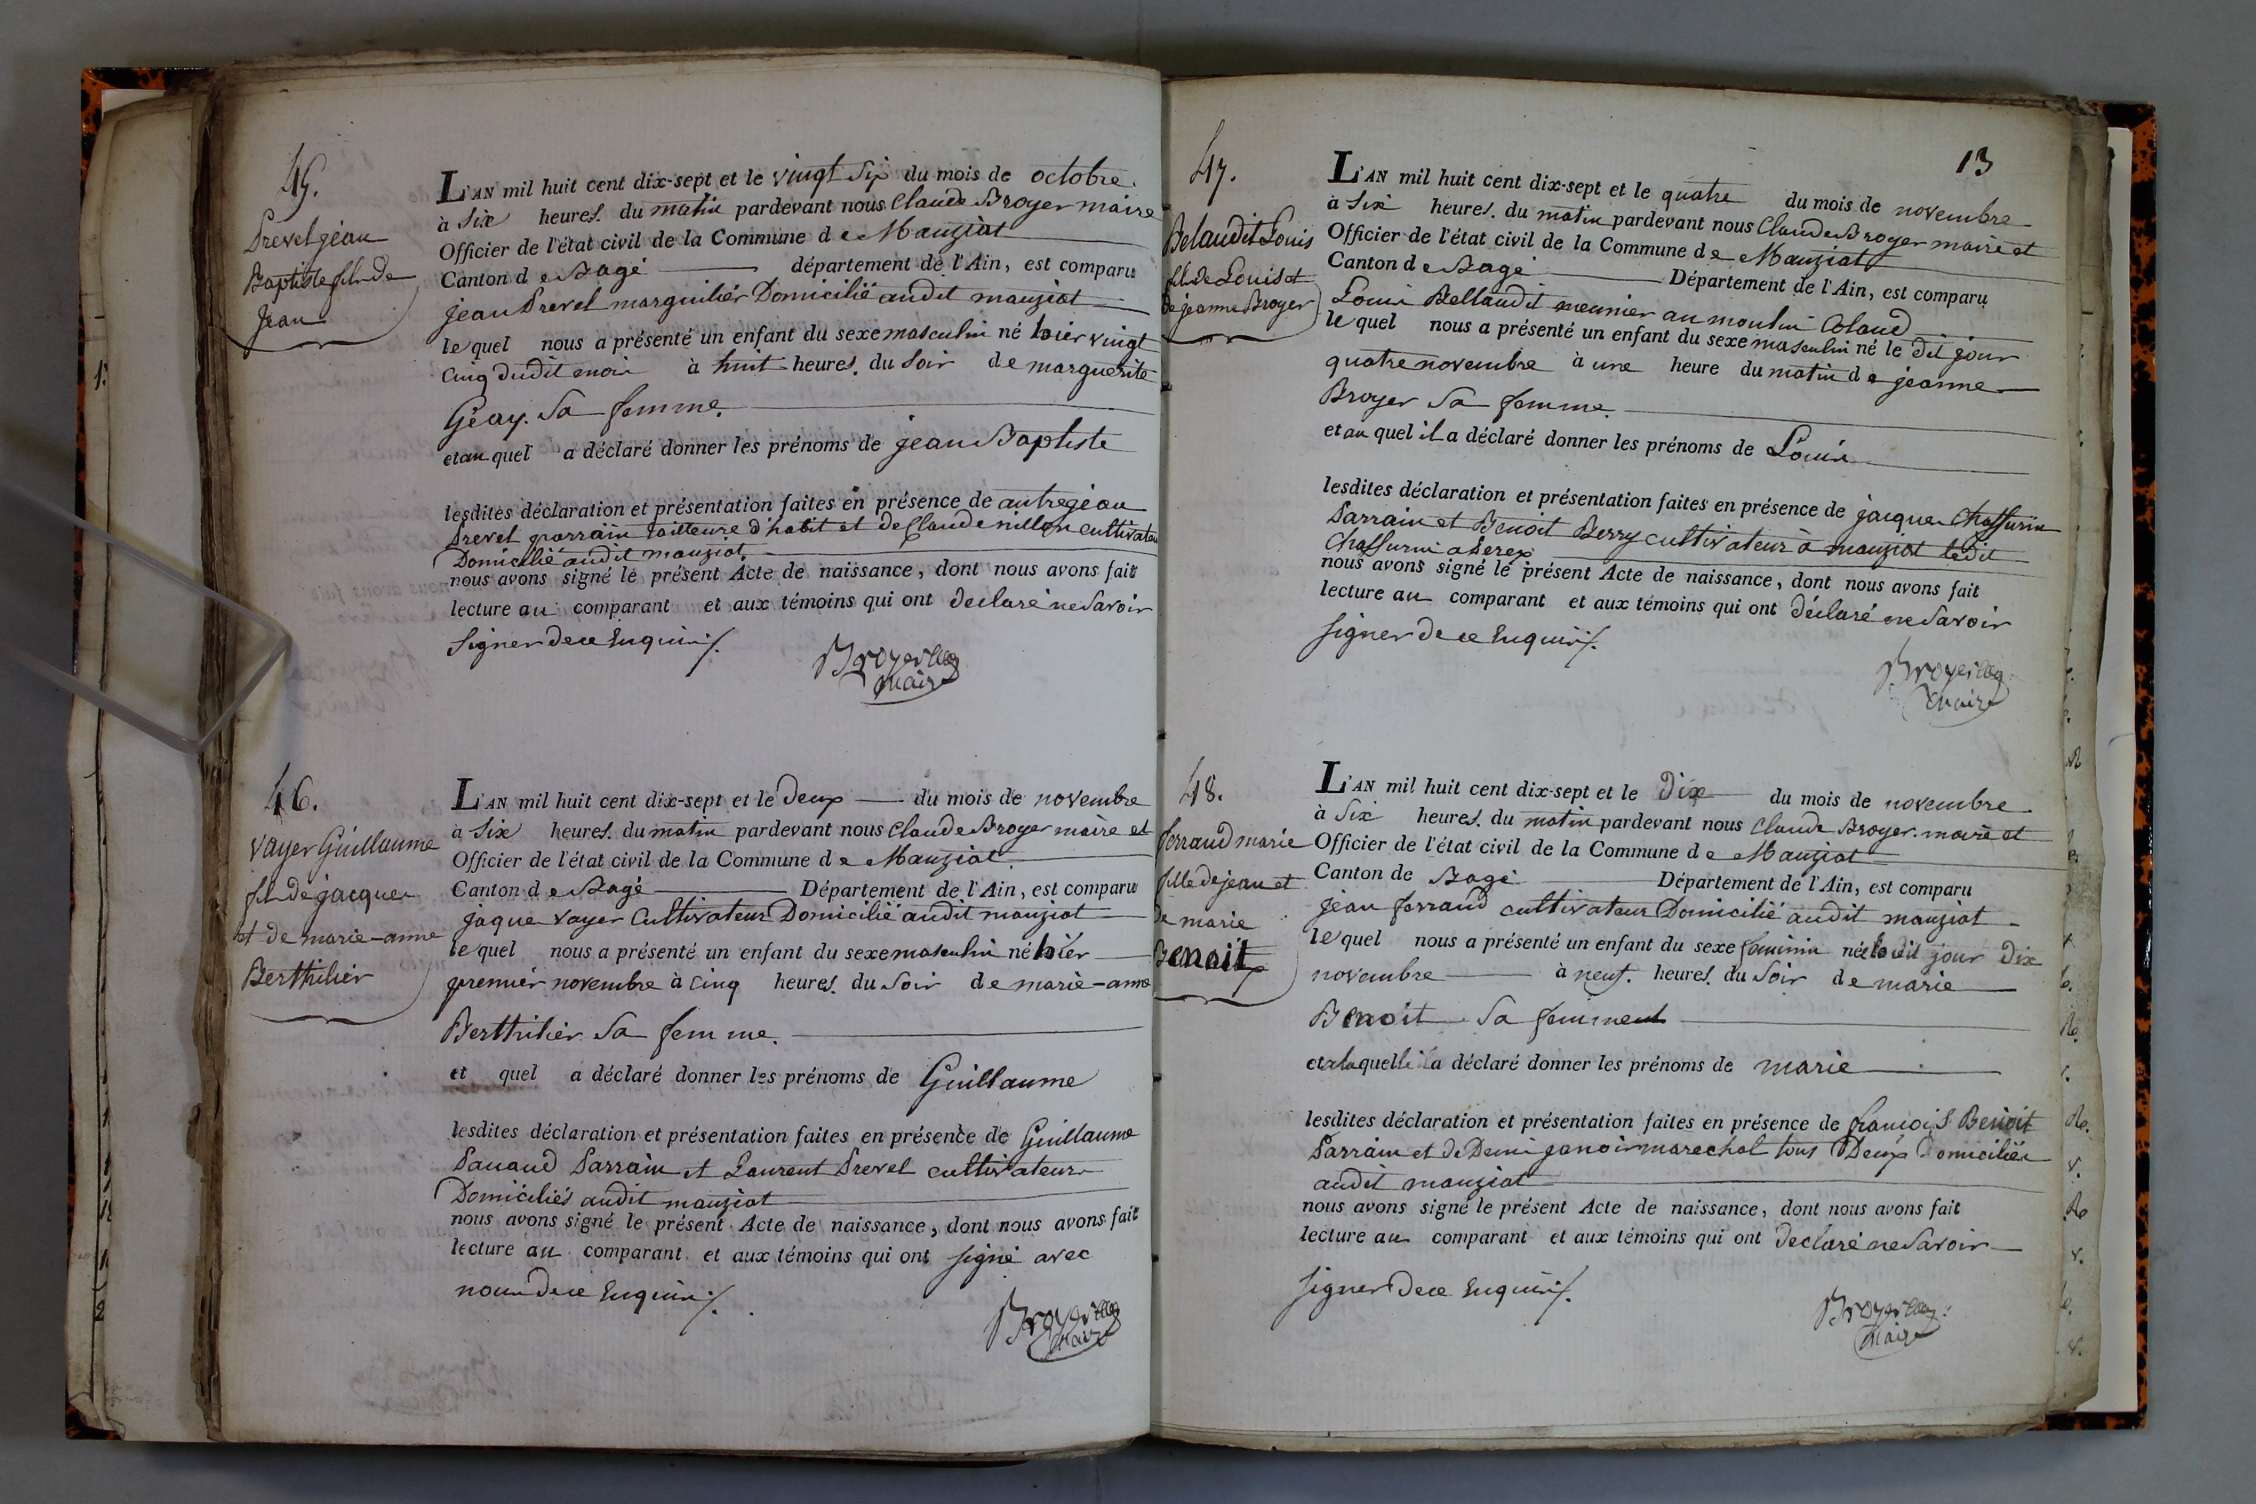 45.
Prevel jean
Baptiste fils de
Jean
L'AN mil huit cent dix-sept et le vingt six du mois de octobre
à six heures du matin pardevant nous Claude Broyer maire
Officier de l'état civil de la Commune de Manziat
Canton de Bagé département de l'Ain, est comparu
jean Prevel marguilier Domicilié audit manziat
lequel nous a présenté un enfant du sexe masculin né hier vingt
cinq dudit mois à huit heures du soir de marguerite
Géay sa femme
et au quel a déclaré donner les prénoms de jean Baptiste
lesdites déclaration et présentation faites en présence de autre jean
Prevel parrain tailleure d'habit et de Claude nillon cultivateur
Domicilié audit manziat
nous avons signé le présent Acte de naissance, dont nous avons fait
lecture au comparant et aux témoins qui ont declaré ne Savoir
signer de ce Enquis
Broyer
maire
46.
vayer Guillaume
fils de jacques
et de marie-anne
Berthilier
L'AN mil huit cent dix-sept et le deux du mois de novembre
à six heures du matin pardevant nous Claude Broyer maire et
Officier de l'état civil de la Commune de Manziat
Canton de Bagé Département de l'Ain, est comparu
jaque vayer Cultivateur Domicilié audit manziat
lequel nous a présenté un enfant du sexe masculin né hier
premier novembre à cinq heures du soir de marie-anne
Berthilier sa femme
et quel a déclaré donner les prénoms de Guillaume
lesdites déclaration et présentation faites en présence de Guillaume
Panaud Parrain et Laurent Prevel cultivateurs
Domiciliés audit manziat
nous avons signé le présent Acte de naissance, dont nous avons fait
lecture au comparant et aux témoins qui ont signé avec
nous de ce Enquis
Broyer
maire
13
47.
Belaudit Louis
fils de Louis et
de jeanne Broyer
L'AN mil huit cent dix-sept et le quatre du mois de novembre
à six heures du matin pardevant nous Claude Broyer maire et
Officier de l'état civil de la Commune de Manziat
Canton de Bagé Département de l'Ain, est comparu
Louis Bellaudit meunier au moulin Coland
lequel nous a présenté un enfant du sexe masculin né le dit jour
quatre novembre à une heure du matin de jeanne
Broyer sa femme
et au quel il a déclaré donner les prénoms de Louis
lesdites déclaration et présentation faites en présence de jacque Chaffurin
Parrain et Benoit Berry cultivateur à manziat ledit
Chaffurin
nous avons signé le présent Acte de naissance, dont nous avons fait
lecture au comparant et aux témoins qui ont déclaré ne Savoir
signer de ce Enquis
Broyer
maire
48.
ferraud marie
fille de jean et
de marie
Benoit
L'AN mil huit cent dix-sept et le Dix du mois de novembre
à six heures du matin pardevant nous Claude Broyer maire et
Officier de l'état civil de la Commune de Manziat
Canton de Bagé Département de l'Ain, est comparu
jean ferraud cultivateur Domicilié audit manziat
lequel nous a présenté un enfant du sexe feminin née le dit jour Dix
novembre à neuf heures du soir de marie
Benoit sa femme
et a laquelle il a déclaré donner les prénoms de marie
lesdites déclaration et présentation faites en présence de francois Benoit
Parrain et de Denis janoir marechal tous Deux Domiciliés
audit manziat
nous avons signé le présent Acte de naissance, dont nous avons fait
lecture au comparant et aux témoins qui ont declaré ne Savoir
signer de ce Enquis
Broyer
maire